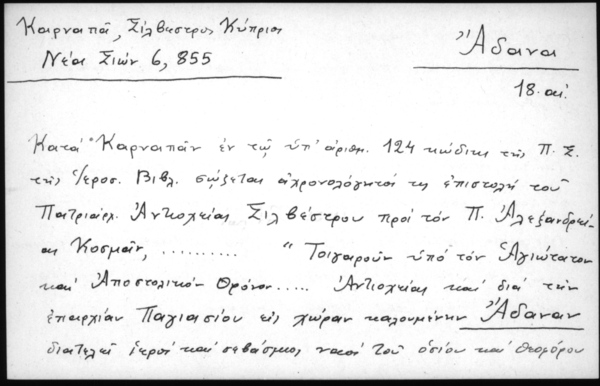 Καρναπᾶ, Σίλβεστρος Κύπριος
Νέα Σιών 6, 855
Ἄδανα
18. αἰ.
Κατά Καρναπᾶν ἐν τῷ ὑπ' ἀριθμ. 124 κώδικι τῆς Π. Σ.
τῆς Ἱεροσ. Βιβλ. σῴζεται ἀχρονολόγητός τις ἐπιστολή τοῦ
Πατριάρχ. Ἀντιοχείας Σιλβέστρου πρός τόν Π. Ἀλεξανδρεί-
ας Κοσμᾶν, .......... "Τοιγαροῦν ὑπό τόν Ἁγιώτατον
καί Ἀποστολικόν Θρόνον..... Ἀντιοχείας καί διά τήν
ἐπαρχίαν Παγιασίου εἰς χώραν καλουμένην Ἄδαναν
διατελεῖ ἱερός καί σεβάσμιος ναός τοῦ ὁσίου καί θεοφόρου